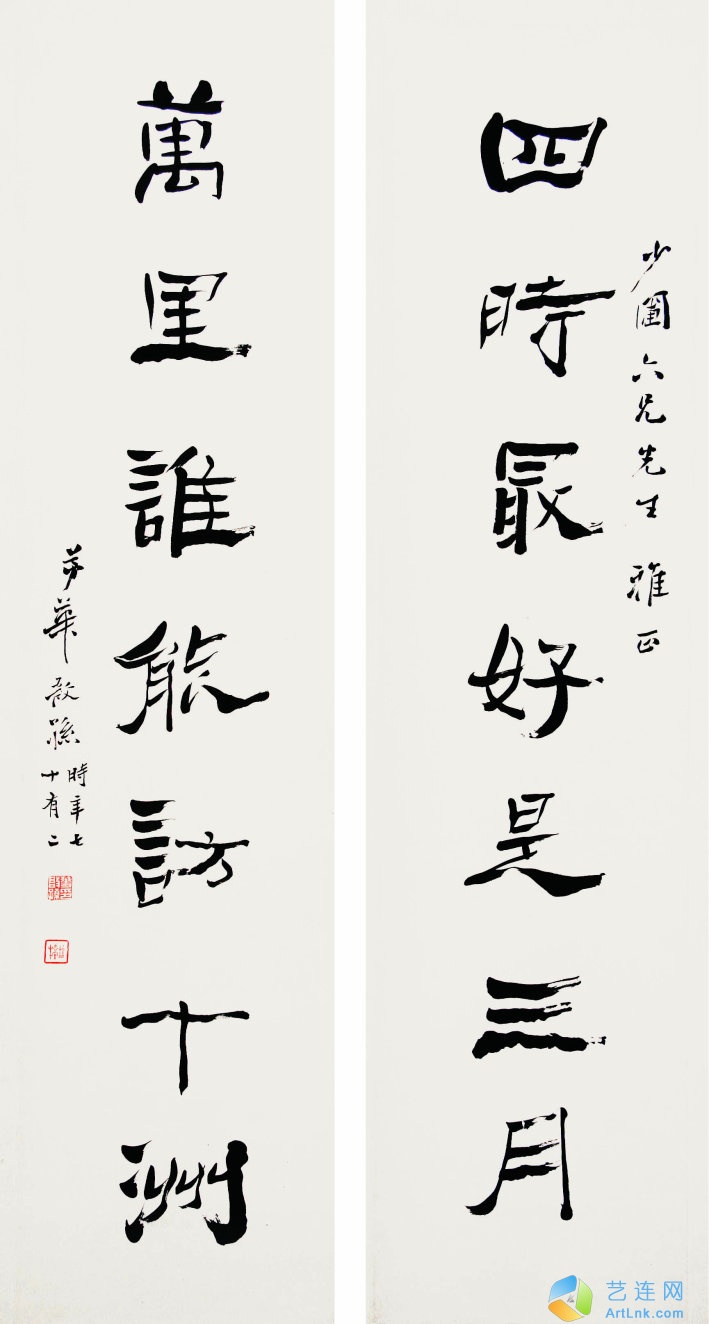 少圃六兄先生 雅正
四時最好是三月
萬里誰能訪十洲
時年七
十有二
艺连网
ArtLnk.com